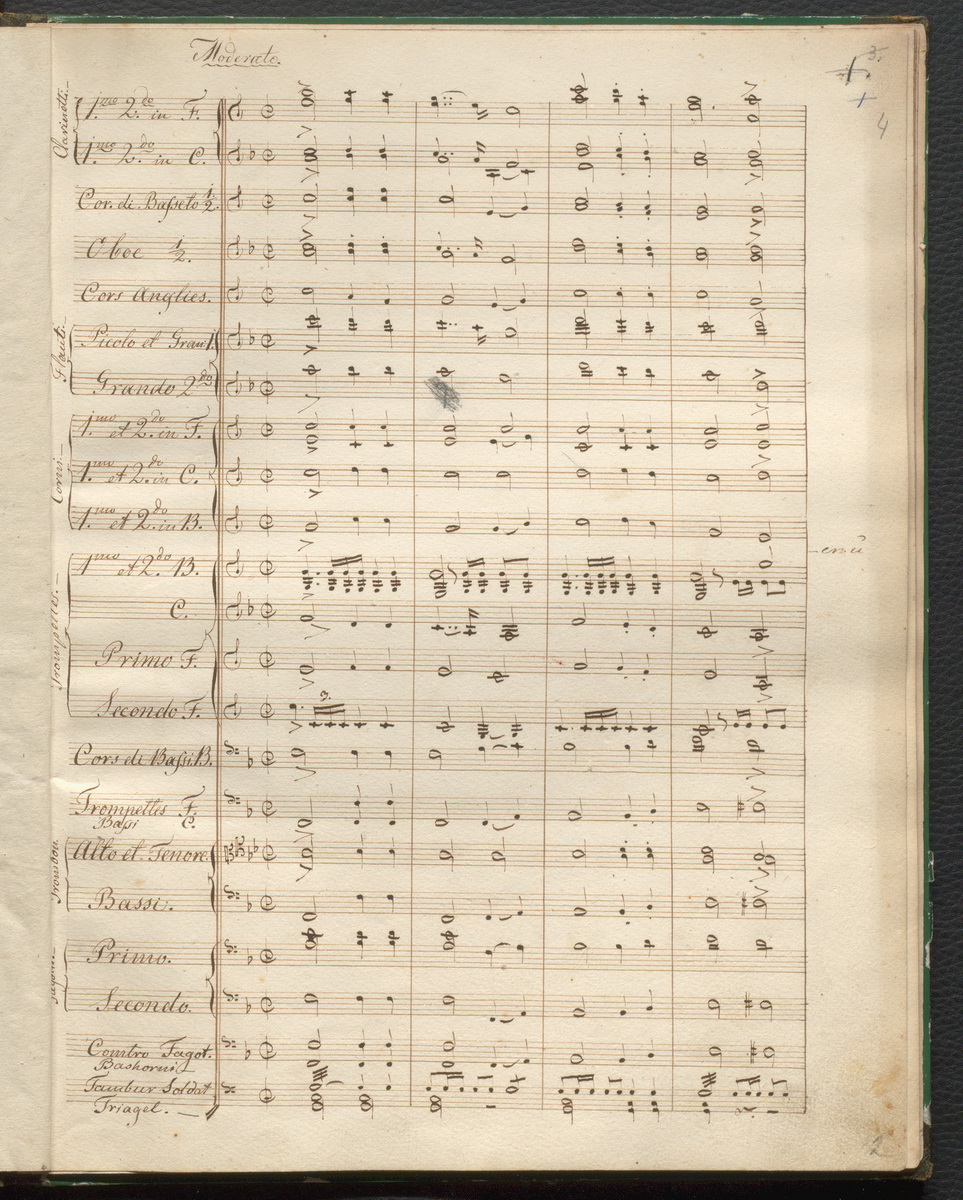 Moderato.
3.
1.
4
Clarinetti.
1.mo 2.do in F.
1.mo 2.do in C.
Cor. di Basseto 1/2.
Oboe 1/2.
Cors Anglies.
Flauti.
Picolo et Gran 1.
Grando 2do
Corni.
1.mo et 2.do in F.
1.mo et 2.do in C.
1.mo et 2.do in B.
Trompettes.
1mo et 2.do B.
C.
Primo F.
Secondo F.
3.
Cors di Bassi B.
Trompettes F.
Bassi C.
Trombon.
Alto et Tenore.
Bassi.
Fagotti.
Primo.
Secondo.
Comtro Fagot.
Bashorni
Tambur Soldat
Triagel.
2